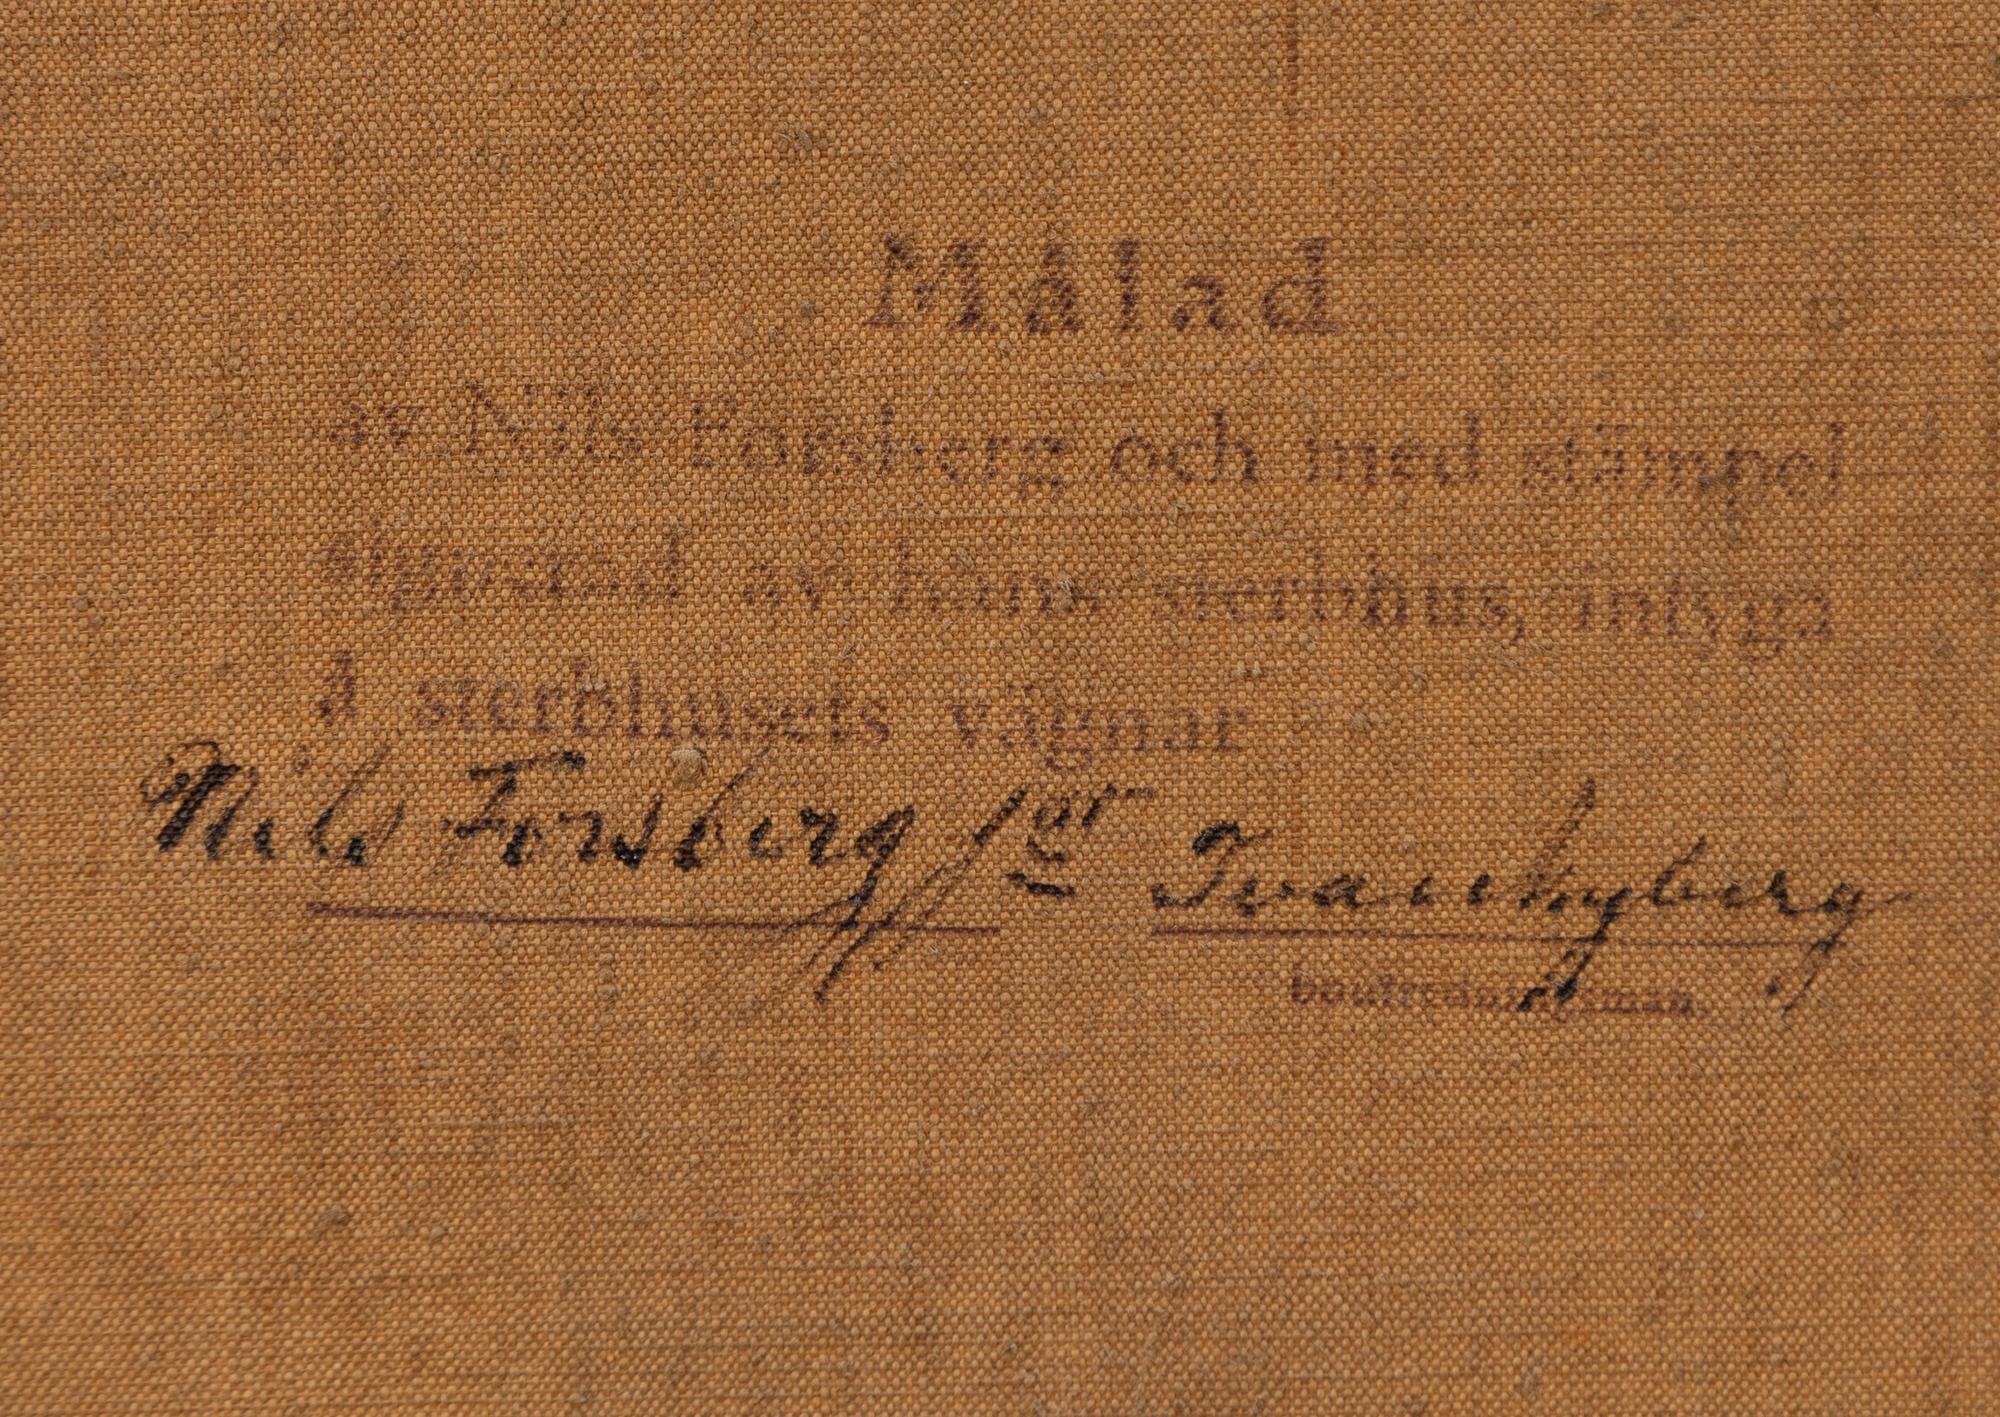 Målad
av Nils Forsberg och med stämpel
signerad av hans sterbhus, intyga
Å sterbhusets vägnar
Nils Forsberg jor
boutredningsman.